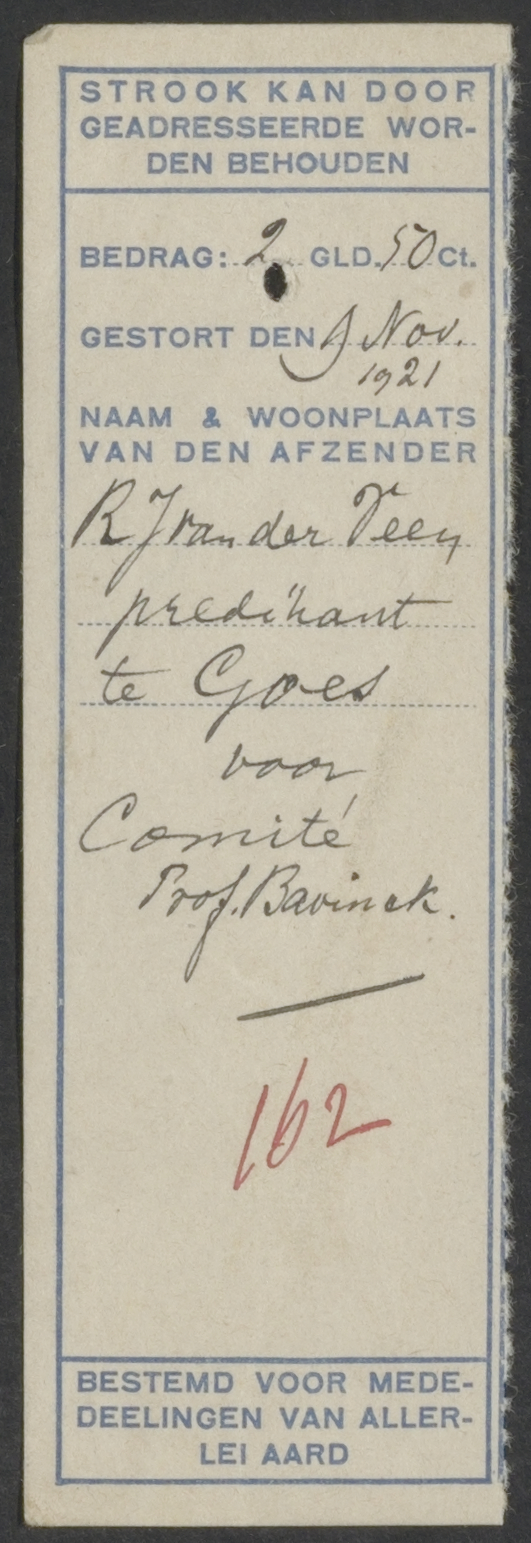 STROOK KAN DOOR
GEADRESSEERDE WOR-
DEN BEHOUDEN
BEDRAG: 2 GLD. 50 Ct.
GESTORT DEN 9 Nov.
1921
NAAM & WOONPLAATS
VAN DEN AFZENDER
R J van der Veen
predikant
te Goes
voor
Comité
Prof. Bavinck.
162
BESTEMD VOOR MEDE-
DEELINGEN VAN ALLER-
LEI AARD